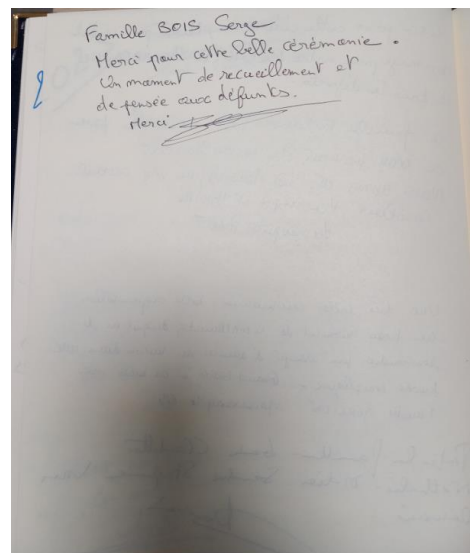 Famille BOIS Serge
Merci pour cette belle cérémonie.
Un moment de recueillement et
de pensée aux défunts.
Merci